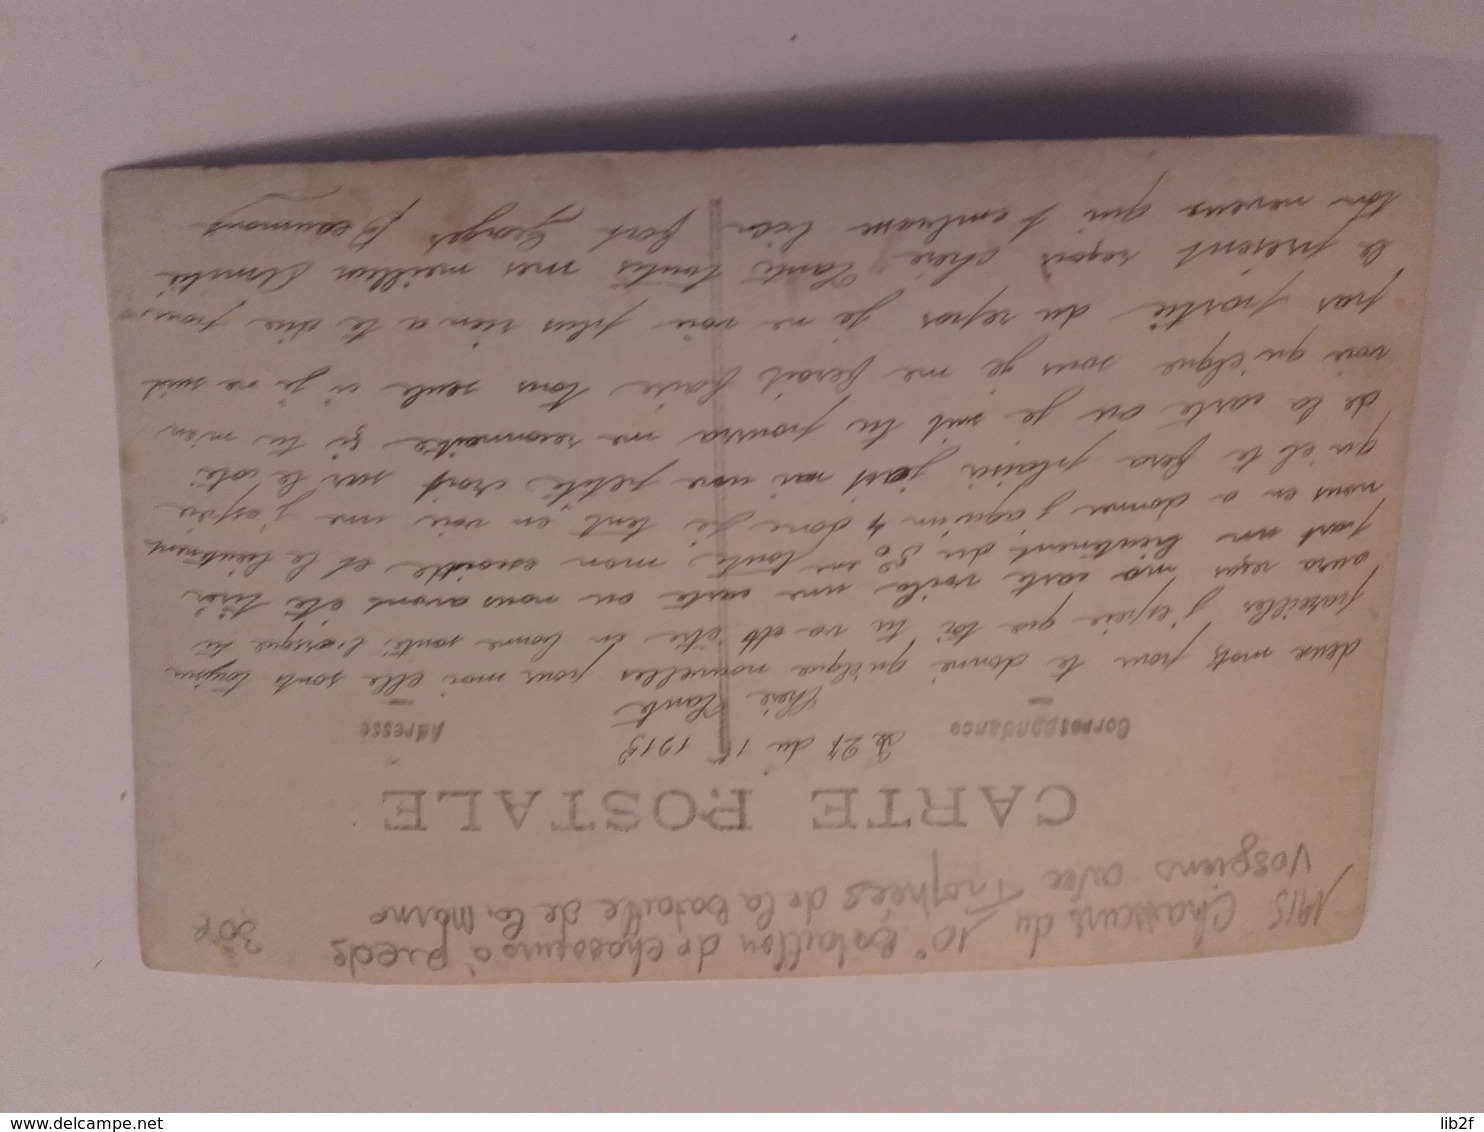 1915 Chasseurs du 10e bataillon de chasseurs à pieds
Vosgiens avec Trophées de la bataille de la Marne
30€
CARTE POSTALE
Correspondance
Adresse
Le 27 du 1 1915
Chère Tante
deux mots pour te donné quelque nouvelles pour moi elle sonts toujours
pareilles j'espère que toi tu va être en bonne santé lorsque tu
aura reçus ma carte voila une carte ou nous avont été tirér
part un lieutenent du 50 en toute mon escoidle et le lieutenent
nous en a donner y aquun 4 donc je tent en voie une j'espère
qu'el te fera plaisir j'ait mi une petite croif sur le coté
de la carte ou je suit tu pourra me reconnaitre si tu mien
voie quelque sous je me ferait faire tous seule ci je ne suit
pas partie du repos je ne voie plus rien a te dire pour
le présent reçoi chère Tante toutes mes meilleur Amitié
ton neveux qui t'embrasse bien fort Georges Beaumont
www.delcampe.net
lib2f